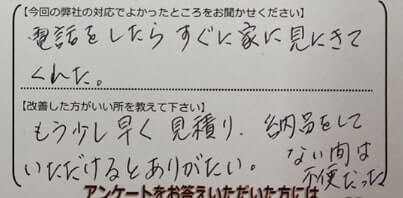 【今回の弊社の対応でよかったところをお聞かせください】
電話をしたらすぐに家に見にきて
くれた。
【改善した方がいい所を教えて下さい】
もう少し早く見積り、納品をして
いただけるとありがたい。
ない間は
不便だった
アンケートをお答えいただいた方には